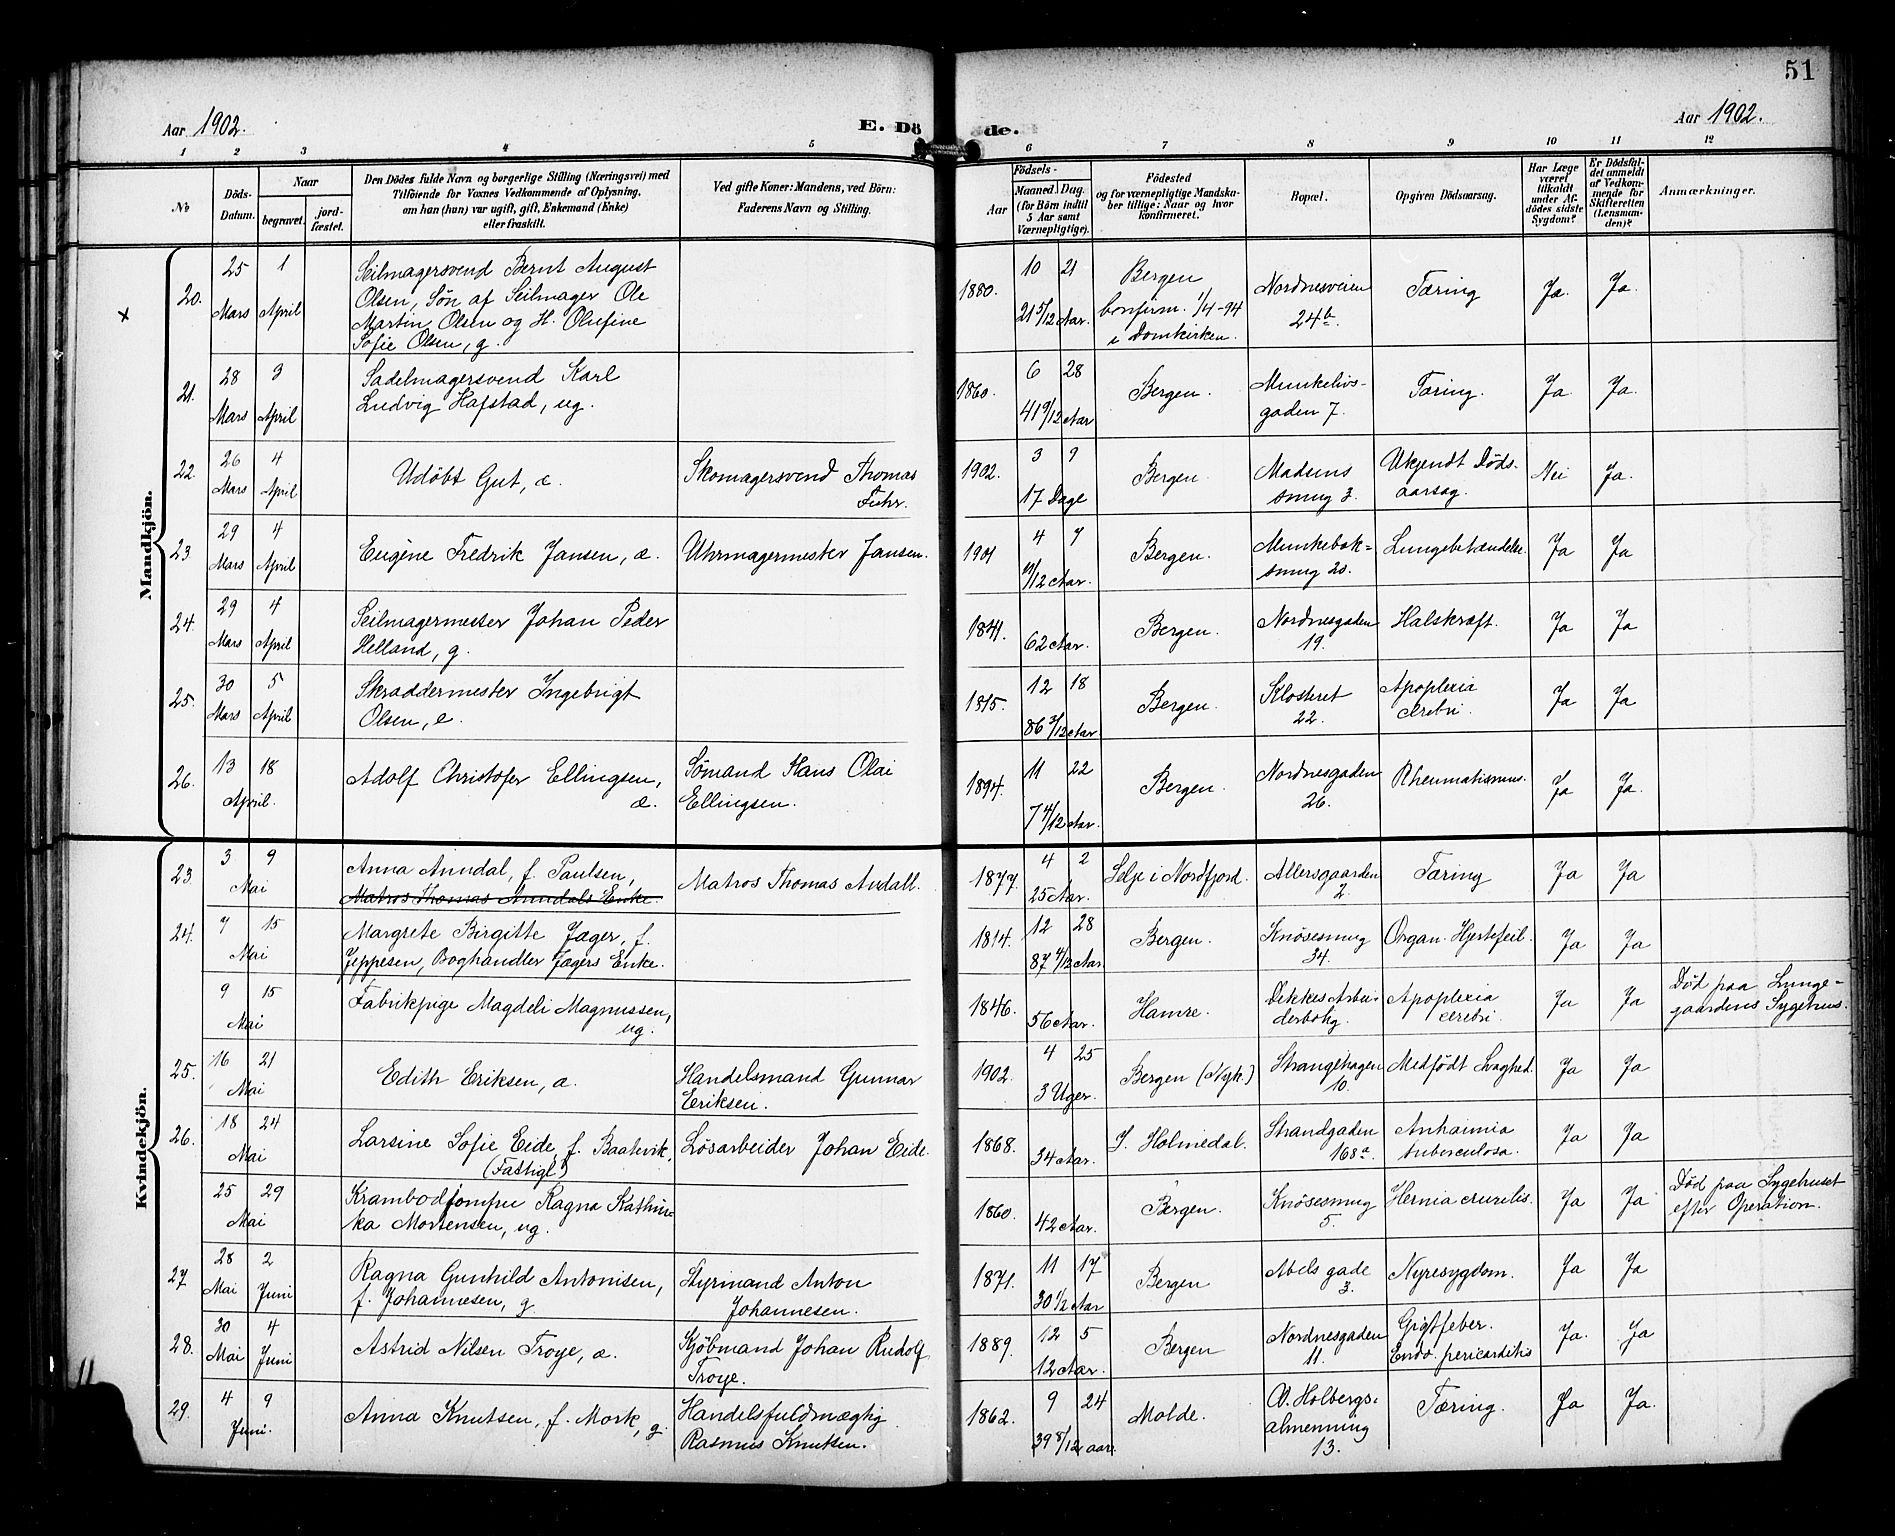 51
Aar 1902.
E. Dö
de.
Aar 1902.
1 2 3 4 5 6 7 8 9 10 11 12
No
Döds-Datum.
Naar
begravet.
jord-fæstet.
Den Dödes fulde Navn og borgerlige Stilling (Næringsvei) med
Tilföiende for Voxnes Vedkommende af Oplysning,
om han (hun) var ugift, gift, Enkemand (Enke)
eller fraskilt.
Ved gifte Koner: Mandens, ved Börn:
Faderens Navn og Stilling.
Födsels-
Aar
Maaned. Dag.
(for Börn indtil
5 Aar samt
Værnepligtige).
Födested
og for værnepligtige Mandska-
ber tillige: Naar og hvor
konfirmeret.
Bopæl.
Opgiven Dödsaarsag.
Har Læge
været
tilkaldt
under Af-
dödes sidste
Sygdom?
Er Dödsfal-
det anmeldt
af Vedkom-
mende for
Skifteretten
(Lensman-
den)?
Anmærkninger.
Mandkjön.
x
20. 25 Mars 1 April
Seilmagersvend Bernt August
Olsen, Søn af Seilmager Ole
Martin Olsen og H. Olufine
Sofie Olsen, g.
1880. 10 21
21 5/12 Aar.
Bergen
Confirm. 1/4-94
i Domkirken.
Nordnesveien
24b.
Tæring Ja. Ja.
21. 28 Mars 3 April
Sadelmagersvend Karl
Ludvig Hafstad, ug.
1860. 6 28
41 9/12 Aar
Bergen.
Munkelivs-
gaden 7.
Tæring. Ja Ja.
22. 26 Mars 4 April
Udöbt Gut, æ.
Skomagersvend Thomas
Fuhr.
1902. 3 9
17 Dage
Bergen.
Madsens
smug 3.
Ukjendt Døds-
aarsag.
Nei Ja.
23 29 Mars 4 April
Eugène Fredrik Jansen, æ.
Uhrmagermester Jansen.
1901 4 7
11/12 Aar.
Bergen.
Munkebæk-
smug 20.
Lungebetændelse. Ja Ja
24. 29 Mars 4 April
Seilmagermester Johan Peder
Helland, g.
62 Aar.
Bergen.
Nordnesgaden
19.
Halskræft. Ja Ja
25. 30 Mars 5 April
Skræddermester Ingebrigt
Olsen, e.
1815. 12 18
86 3/12 Aar
Bergen.
Klosteret
22.
Apoplexia
cerebri.
Ja Ja
26. 13 18 April.
Adolf Christofer Ellingsen,
æ.
Sømand Hans Olai
Ellingsen.
1894. 11 22
7 4/12 Aar.
Bergen.
Nordnesgaden
26.
Rheumatismus. Ja Ja.
Kvindekjön.
23. 3 9 Mai
Anna Anndal, f. Paulsen,
Matros Thomas Anndals Enke.
Matros Thomas Andall.
1877. 4 2
25 Aar.
Selje i Nordfjord.
Allersgaarden
2.
Tæring Ja Ja
24. 7 15 Mai
Margrete Birgitte Jæger, f.
Jeppesen, Boghandler Jægers Enke.
1814. 12 28
87 4/12 Aar
Bergen.
Knösesmug
34.
Organ. Hjertefeil. Ja Ja
9 15 Mai
Fabrikpige Magdeli Magnussen,
ug.
1846.
56 Aar.
Hamre.
Dekkes Arbei-
derbolig.
Apoplexia
cerebri.
Ja Ja
Død paa Lunge-
gaardens Sygehus.
25. 16 21 Mai
Edith Eriksen, æ.
Handelsmand Gunnar
Eriksen.
1902. 4 25
3 Uger.
Bergen (Nyk.)
Strangehagen
10.
Medfødt Svaghed. Ja Ja
26. 18 24 Mai
Larsine Sofie Eide, f. Baatevik,
(Fattigl.)
Løsarbeider Johan Eide.
1868.
34 Aar.
Y. Holmedal.
Strandgaden
168a.
Anhaimia
tuberculosa.
Ja Ja
25 29 Mai
Krambodjomfru Ragna Kathin-
ka Mortensen, ug.
1860.
42 Aar.
Bergen.
Knösesmug
5.
Hernia cruralis. Ja Ja
Død paa Sygehuset
efter Operation.
27 28 Mai 2 Juni
Ragna Gunhild Antonisen,
f. Johannesen, g.
Styrmand Anton
Johannesen.
1871. 11 17
30 1/2 Aar
Bergen
Abels gade
3.
Nyresygdom. Ja Ja
28. 30 Mai 4 Juni
Astrid Nilsen Troye, æ.
Kjöbmand Johan Rudolf
Troye.
1889. 12 5
12 Aar.
Bergen
Nordnesgaden
11.
Gigtfeber.
Endo. pericarditis
Ja. Ja
29. 4 9 Juni.
Anna Knutsen, f. Mork, g.
Handelsfuldmægtig
Rasmus Knutsen.
1862. 9 24
39 8/12 aar.
Molde.
V. Holbergs-
almenning
13.
Tæring. Ja Ja.